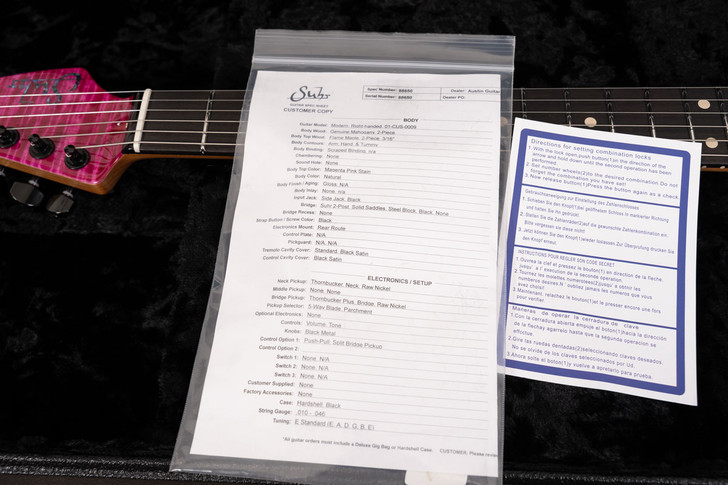 Suhr
Suhr
GUITAR SPEC SHEET
CUSTOMER COPY
Spec Number: 69880
Serial Number: 69880
Dealer: Austin Guitar
Dealer PO:
BODY
Guitar Model: Modern, Right-handed, 01-CUS-0009
Body Wood: Genuine Mahogany, 2-Piece
Body Top Wood: Flame Maple, 2-Piece, 3/16"
Body Contours: Arm, Hand, & Tummy
Body Binding: Scraped Binding, n/a
Chambering: None
Sound Hole: None
Body Top Color: Magenta Pink Stain
Body Color: Natural
Body Finish / Aging: Gloss, N/A
Body Inlay: None, n/a
Input Jack: Side Jack, Black
Bridge: Suhr 2-Post, Solid Saddles, Steel Block, Black, None
Bridge Recess: None
Strap Button / Screw Color: Black
Electronics Mount: Rear Route
Control Plate: N/A
Pickguard: N/A, N/A
Tremolo Cavity Cover: Standard, Black Satin
Control Cavity Cover: Black Satin
ELECTRONICS / SETUP
Neck Pickup: Thornbucker, Neck, Raw Nickel
Middle Pickup: None, None
Bridge Pickup: Thornbucker Plus, Bridge, Raw Nickel
Pickup Selector: 5-Way Blade, Parchment
Optional Electronics: None
Controls: Volume, Tone
Knobs: Black Metal
Control Option 1: Push-Pull, Split Bridge Pickup
Control Option 2:
Switch 1: None, N/A
Switch 2: None, N/A
Switch 3: None, N/A
Customer Supplied: None
Factory Accessories: None
Case: Hardshell, Black
String Gauge: .010 - .046
Tuning: E Standard (E, A, D, G, B, E)
*All guitar orders must include a Deluxe Gig Bag or Hardshell Case.
CUSTOMER: Please
Directions for setting combination locks
1. With the lock open push button(1)in the direction of the
arrow and hold down until the second operation has been
performed.
2. Set number wheels(2)to the desired combination.Do not
forget the combination you have set!
3. Now release button(1)Press the button again as a check
Gebrauchsanweisung zur Einstellung des Zahlenschlosses
1. Schieben Sie den Knopf(1)bei geöffnetem Schloss in markierter Richtung
und halten Sie ihn gedrückt.
2. Stellen Sie die Zahnräder(2)auf die gewünschte Zahlenkombination ein.
Bitte vergessen sie diese nicht!
3. Jetzt können Sie den Knopf(1)wieder loslassen Zur Überprüfung drücken Sie
den Knopf erneut.
INSTRUCTIONS POUR REGLER SON CODE SECRET
1.Ouvrez la clef et pressez le bouton(1)en direction de la fleche,
jusqu' a l' execution de la seconde operation.
2.Tournez les molettes numerotees(2)jusqu' a obtenir les
numberos desires.N ' oubliez jamais les numeros que vous
avez choisi!
3.Maintenant, relachez le bouton(1)et la presser encore une fois
pour verifier.
Maneras de operar la cerradura de clave
1.Con la cerradura abierta empuje el boton(1)hacia la dirección
de la flechay agarrelo hasta que la segunda operación se
effectue.
2.Gire las ruedas dentadas(2)seleccionando claves deseados.
No se olvide de los claves seleccionados por Ud.
3.Ahora solte el boton(1)y vuelve a apretarlo para prueba.